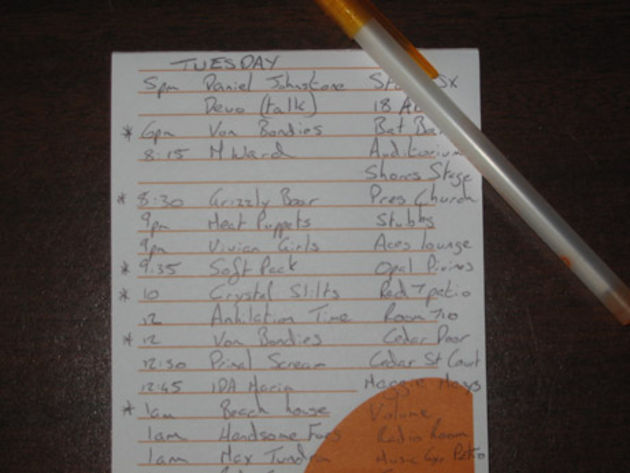 TUESDAY
5pm Daniel Johnstone SX
Devo (talk) 18
* 6pm Von Bondies Bat Bar
8:15 M Ward Auditorium
Shores Stage
* 8:30 Grizzly Bear Pres Church
9pm Meat Puppets Stubbs
9pm Vivian Girls Aces lounge
* 9:35 Soft Pack Opal Divines
* 10 Crystal Stilts Red 7 patio
12 Anhilation Time Room 710
* 12 Von Bondies Cedar Door
12:30 Primal Scream Cedar St Court
12:45 IDA Maria Maggie Mays
* 1am Beach house Volume
1am Handsome Furs Radio Room
1am Max Tundra Music Gym Patio